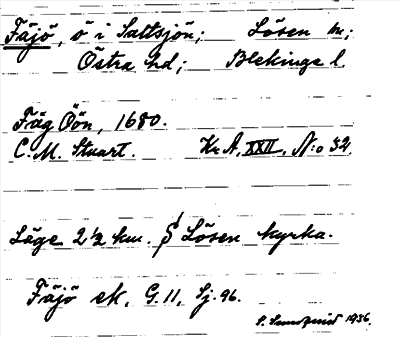 Fäjö, ö i Saltsjön; Lösen sn;
Östra hd; Blekinge l.
Fäg Öön, 1680.
C. M. Stuart. Kr. A. XXII, N:o 32.
Läge 2½ km. S Lösen kyrka.
Fäjö ek. G. 11, Sj. 96.
S. Sundquist 1936.